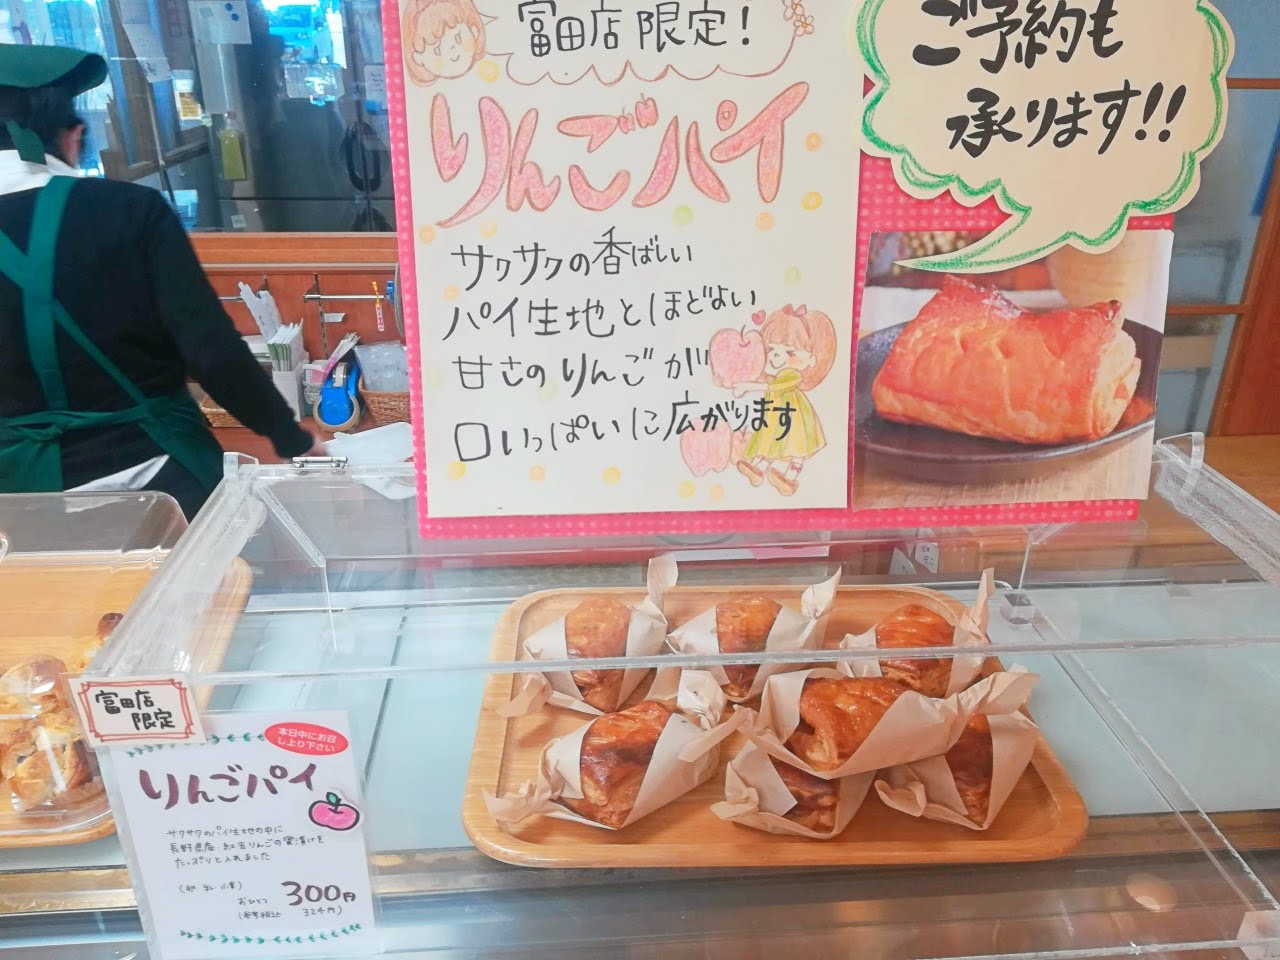 富田店限定!
りんごパイ
サクサクの香ばしい
パイ生地とほどよい
甘さのりんごが
口いっぱいに広がります
ご予約も
承ります!!
富田店
限定
本日中にお召
し上り下さい
りんごパイ
サクサクのパイ生地の中に
長野県産 紅玉りんごの蜜漬けを
たっぷりと入れました
(卵 乳 小麦)
おひとつ 300円
(参考税込 324円)